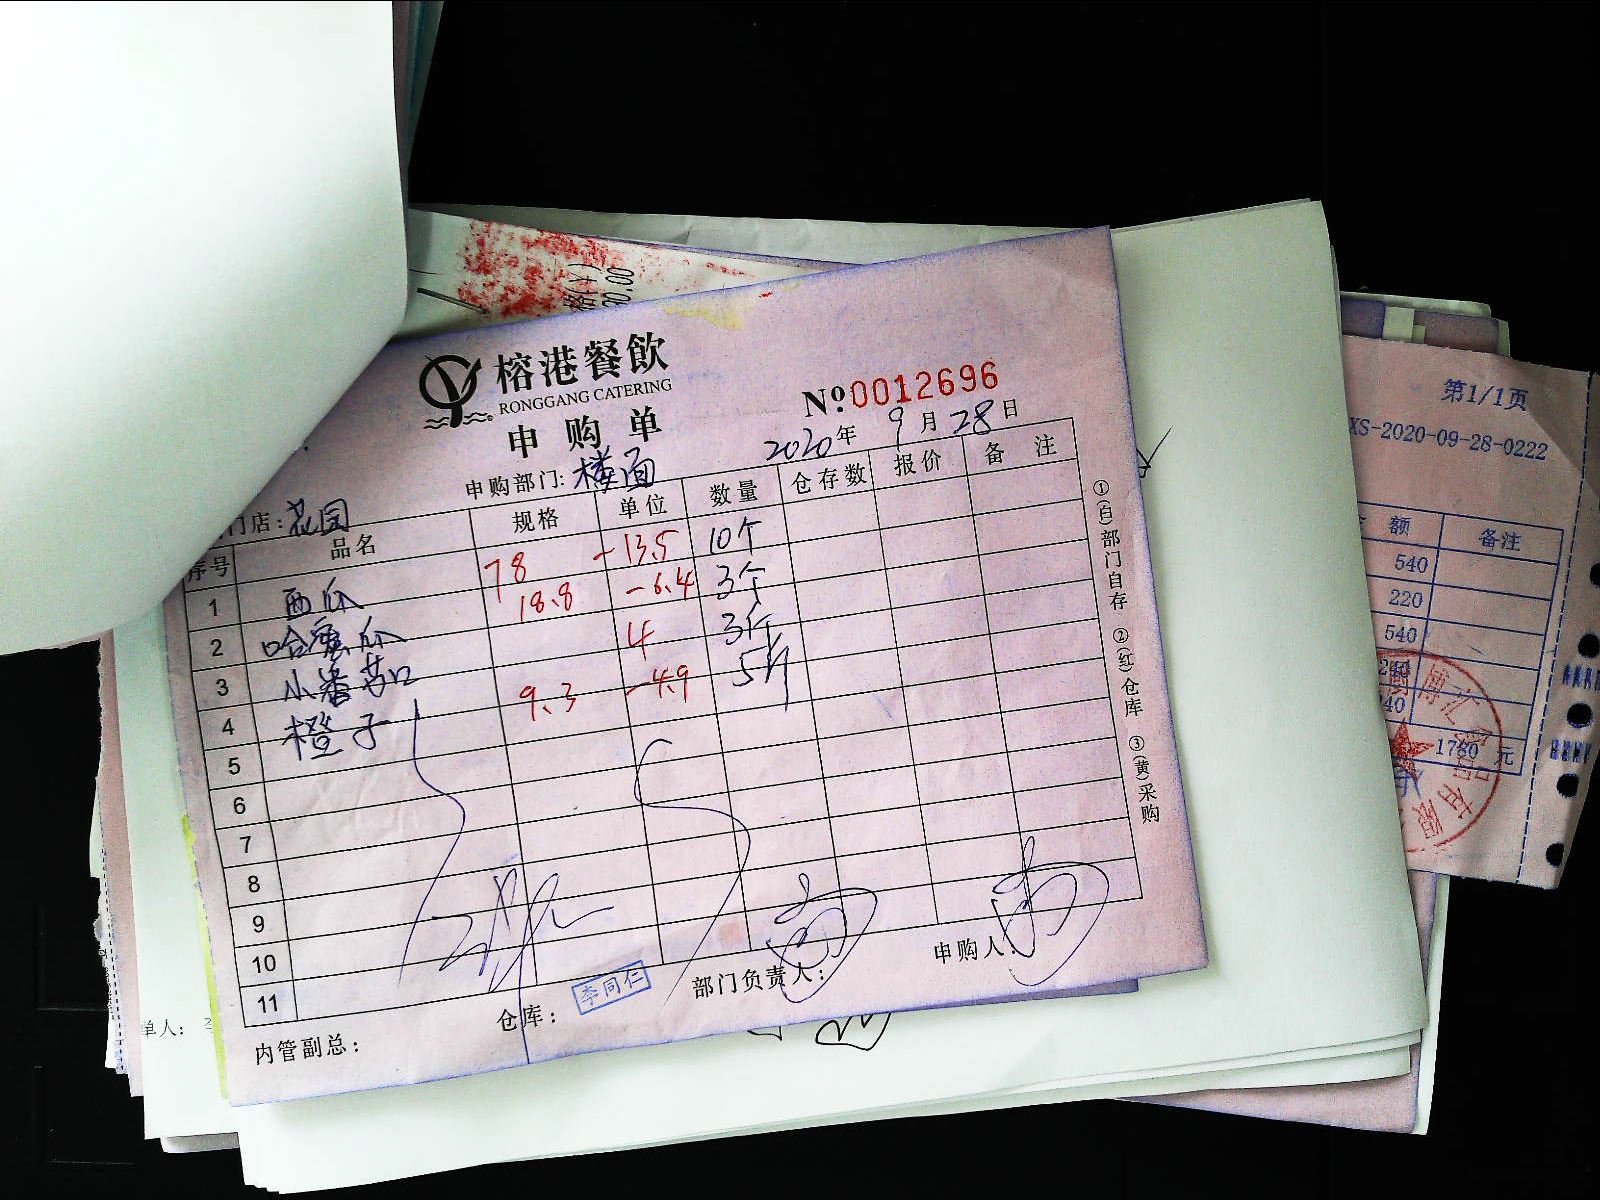 榕港餐飲
RONGGANG CATERING
申购单
No 0012696
2020年 9月 28日
门店: 花园 申购部门: 楼面
序号 品名 规格 单位 数量 仓存数 报价 备注
1 西瓜 78 -13.5 10个
2 哈蜜瓜 18.8 -6.4 3个
3 小番茄 4 3斤
4 橙子 9.3 -4.9 5斤
5
6
7
8
9
10
11
内管副总: 仓库: 李同仁 部门负责人: 申购人:
①(白)部门自存 ②(红)仓库 ③(黄)采购
第1/1页
XS-2020-09-28-0222
额 备注
540
220
540
240
40
1780 元
博汇
有限
单人: